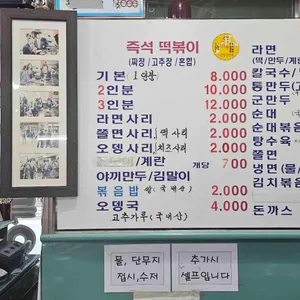 즉석 떡볶이
(짜장/고추장/혼합)
기본 1인분 8.000
2인분 10.000
3인분 12.000
라면사리 2.000
쫄면사리 떡사리 2.000
오뎅사리 치즈사리 2.000
/계란 개당 700
야끼만두/김말이
볶음밥 쌀(국내산) 2.000
오뎅국 4.000
고추가루(국내산)
라면
(떡/만두/계란
칼국수/
통만두(고
군만두
순대
순대볶음
탕수육
쫄면
냉면(물
김치볶음
돈까스
물, 단무지
접시,수저
추가시
셀프입니다